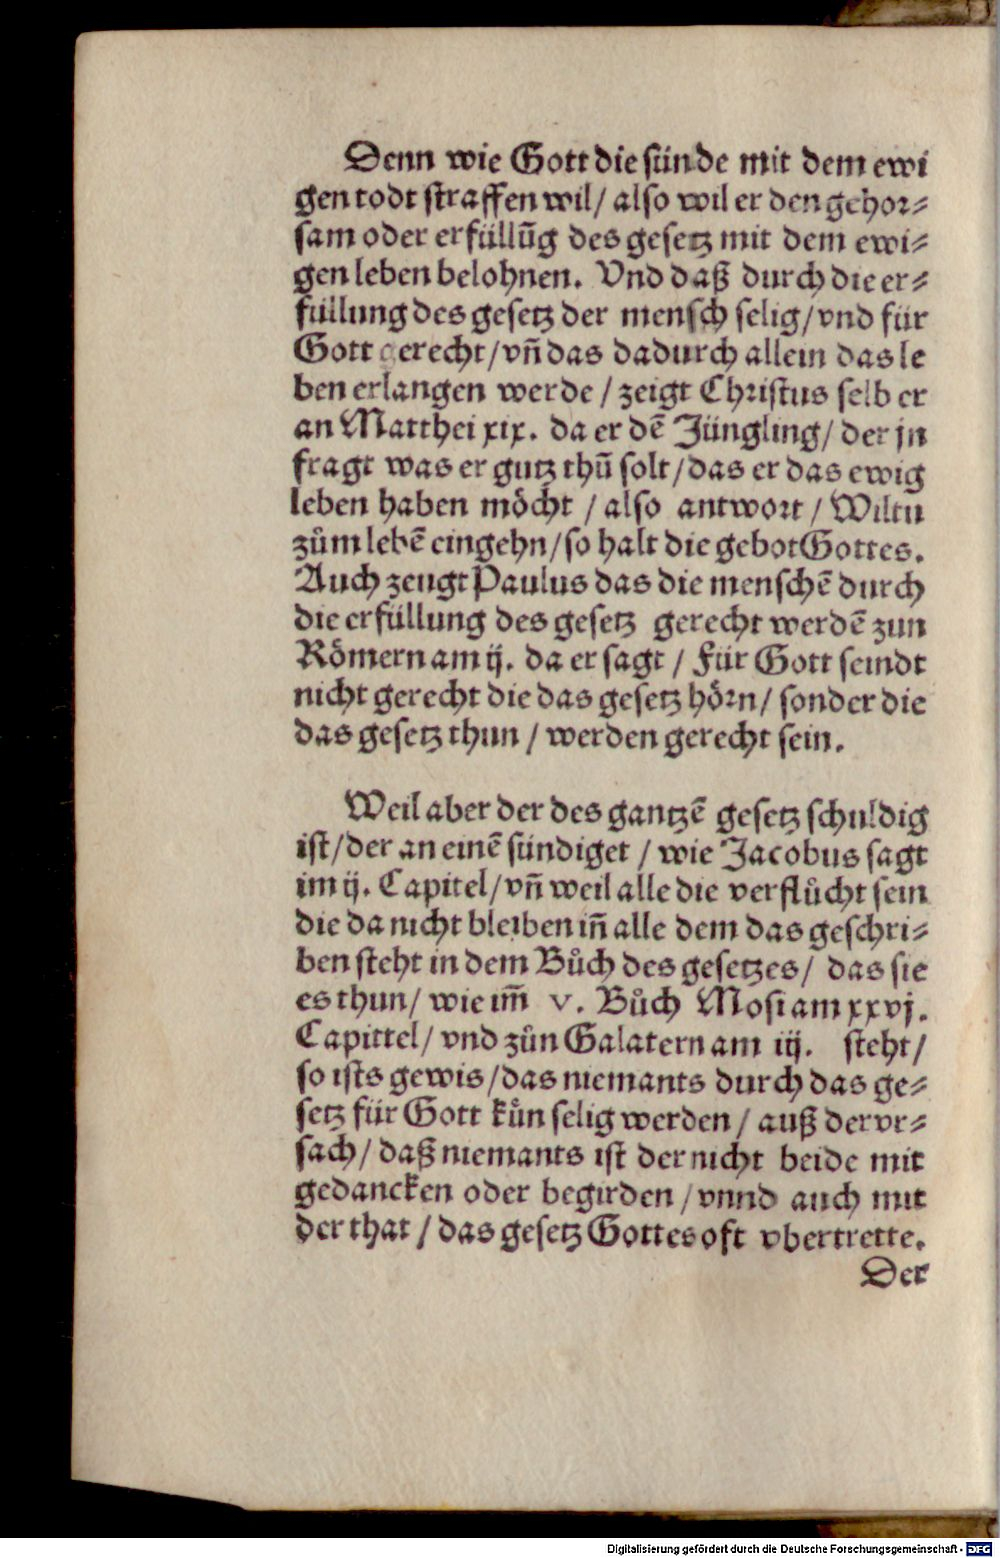 Denn wie Gott die sünde mit dem ewi
gen todt straffen wil/ also wil er den gehor⸗
sam oder erfüllũg des gesetz mit dem ewi⸗
gen leben belohnen. Vnd daß durch die er⸗
füllung des gesetz der mensch selig/vnd für
Gott gerecht/vñ das dadurch allein das le
ben erlangen werde / zeigt Christus selb er
an Matthei xix. da er dẽ Jüngling/ der jn
fragt was er gutz thũ solt/das er das ewig
leben haben möcht / also antwort / Wiltu
zům lebẽ eingehn/so halt die gebot Gottes.
Auch zeugt Paulus das die menschẽ durch
die erfüllung des gesetz gerecht werdẽ zun
Römern am ij. da er sagt / Für Gott seindt
nicht gerecht die das gesetz hörn/ sonder die
das gesetz thun / werden gerecht sein.
Weil aber der des gantzẽ gesetz schuldig
ist/der an einẽ sündiget / wie Jacobus sagt
im ij. Capitel/vñ weil alle die verflůcht sein
die da nicht bleiben iñ alle dem das geschri⸗
ben steht in dem Bůch des gesetzes/ das sie
es thun/ wie im̃ v. Bůch Mosi am xxvj.
Capittel/ vnd zůn Galatern am iij. steht/
so ists gewis/das niemants durch das ge⸗
setz für Gott kůn selig werden / auß der vr⸗
sach/ daß niemants ist der nicht beide mit
gedancken oder begirden /vnnd auch mit
der that / das gesetz Gottes oft vbertrette.
Der
Digitalisierung gefördert durch die Deutsche Forschungsgemeinschaft - DFG